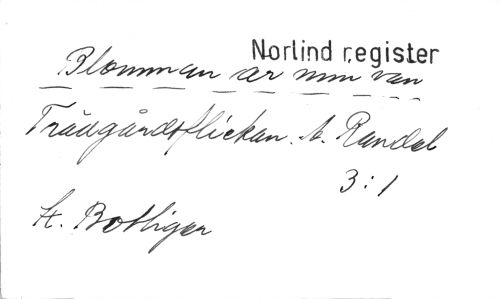 Norlind register
Blomman är min vän
Trädgårdsflickan. A. Randel
3:1
H. Bottiger